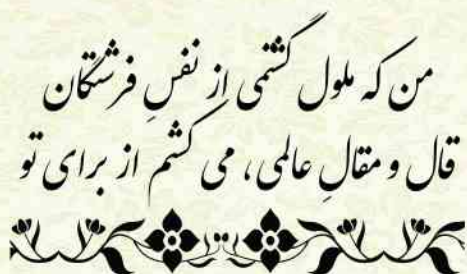 من که ملول گشتمی از نفسِ فرشتگان
قال و مقالِ عالمی، می کشم از برای تو